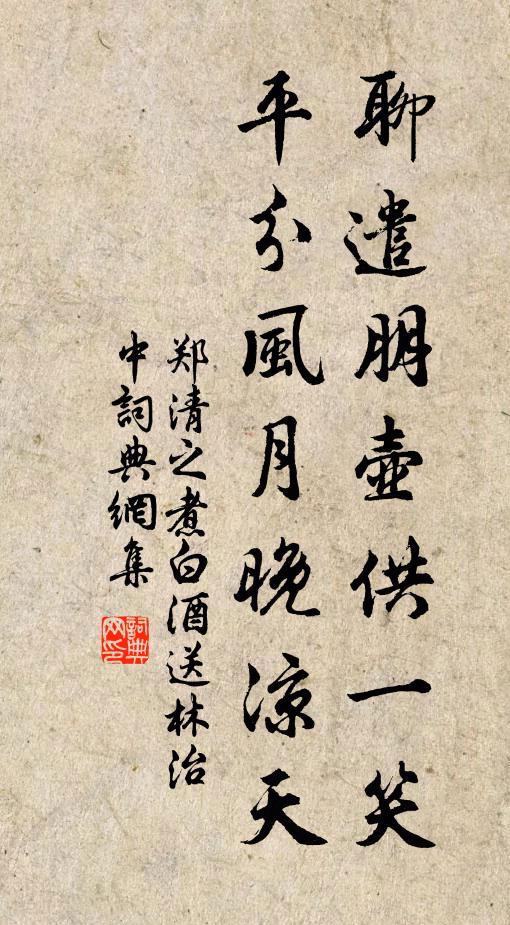 聊遣朋壺供一笑
平分風月晚涼天
郑清之煮白酒送林治
中詞典網集
詞典網印